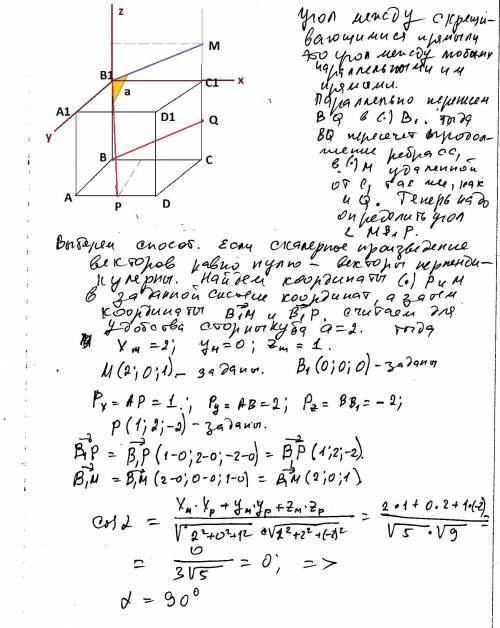 z
M
B1
x
a
C1
A1
D1
y
Q
B
C
A
P
D
Угол между скрещи-
вающимися прямыми
это угол между любыми
параллельными им
прямыми.
Параллельно перенесем
BQ в (.) B₁. Тогда
BQ пересечет продол-
жение ребра CC₁
в (.) M удаленной
от C₁ так же, как
и Q. Теперь надо
определить угол
∠ MB₁P.
Выберем способ. Если скалярное произведение
векторов равно нулю – векторы перпенди-
кулярны. Найдем координаты (.) P и M
в заданной системе координат, а затем
координаты B₁M и B₁P. Считаем для
удобства стороны куба a=2. Тогда
Xм = 2; yм = 0; zм = 1.
M(2;0;1) – заданы. B₁(0;0;0) – заданы
Pₓ = AP = 1; Py = AB = 2; Pz = BB₁ = -2;
P(1;2;-2) – заданы.
B₁P = B₁P(1-0; 2-0; -2-0) = B₁P(1;2;-2).
B₁M = B₁M(2-0; 0-0; 1-0) = B₁M(2;0;1)
cos α = (Xм·Xp + yм·yp + zм·zp) / (√2²+0²+1² · √1²+2²+(-2)²) = (2·1+0·2+1·(-2)) / (√5·√9)
= 0 / 3√5 = 0; =>
α = 90⁰